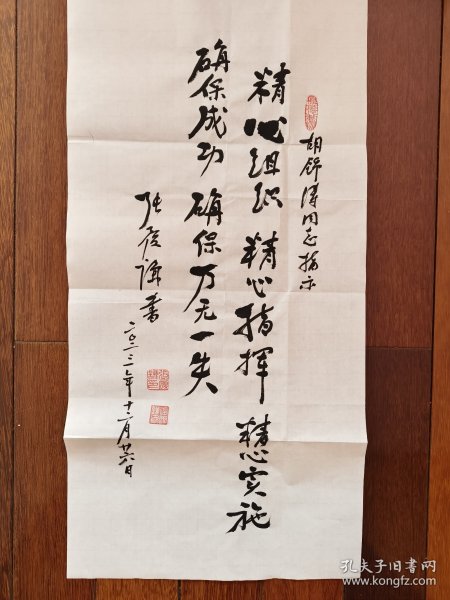 胡锦涛同志指示
精心组织 精心指挥 精心实施
确保成功 确保万无一失
张履谦书
二〇二二年十二月廿六日
孔夫子旧书网
www.kongfz.com